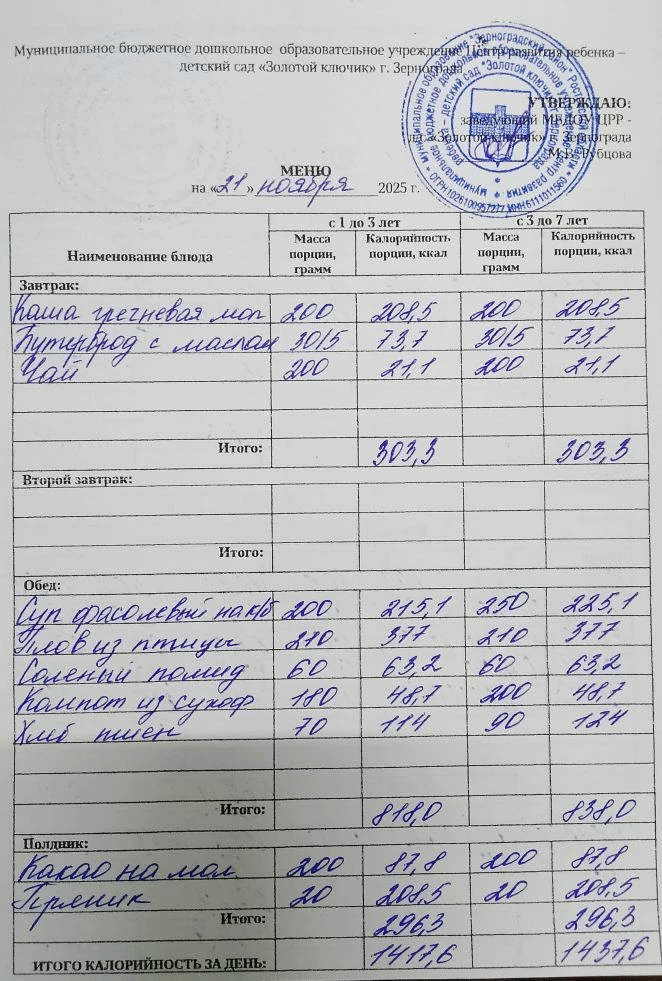 Муниципальное бюджетное дошкольное образовательное учреждение Центр развития ребенка –
детский сад «Золотой ключик» г. Зернограда
УТВЕРЖДАЮ:
заведующий МБДОУ ЦРР -
д/с «Золотой ключик» г. Зернограда
М.В. Рубцова
МЕНЮ
на «21» ноября 2025 г.
Наименование блюда с 1 до 3 лет с 3 до 7 лет
Масса порции, грамм Калорийность порции, ккал Масса порции, грамм Калорийность порции, ккал
Завтрак:
Каша гречневая мол 200 208,5 200 208,5
Бутерброд с маслом 30/5 73,7 30/5 73,7
Чай 200 21,1 200 21,1
Итого: 303,3 303,3
Второй завтрак:
Итого:
Обед:
Суп фасолевый на к/б 200 215,1 250 225,1
Плов из птицы 210 377 210 377
Соленый помид 60 63,2 60 63,2
Компот из сухоф 180 48,7 200 48,7
Хлеб пшен 70 114 90 124
Итого: 818,0 838,0
Полдник:
Какао на мол. 200 87,8 200 87,8
Пряник 20 208,5 20 208,5
Итого: 296,3 296,3
ИТОГО КАЛОРИЙНОСТЬ ЗА ДЕНЬ: 1417,6 1437,6